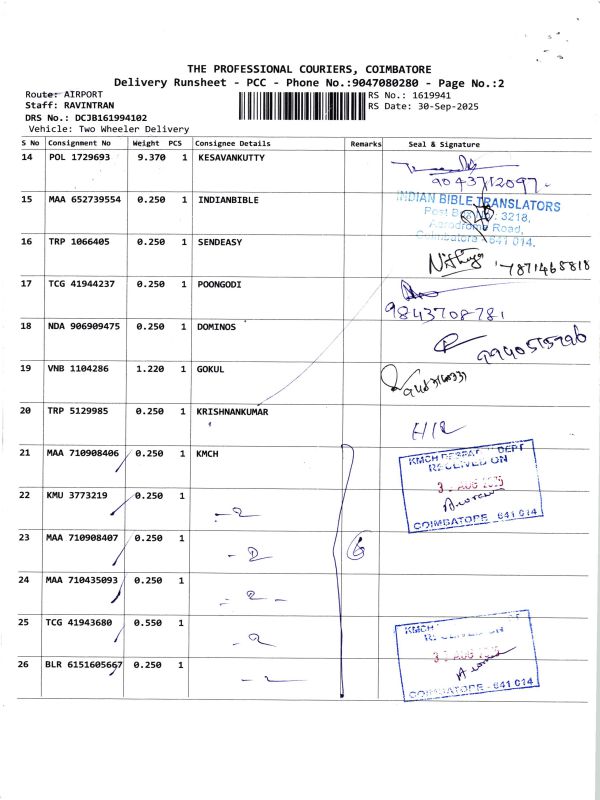 THE PROFESSIONAL COURIERS, COIMBATORE
Delivery Runsheet - PCC - Phone No.:9047080280 - Page No.:2
Route: AIRPORT
RS No.: 1619941
Staff: RAVINTRAN
RS Date: 30-Sep-2025
DRS No.: DCJB161994102
Vehicle: Two Wheeler Delivery
S No Consignment No Weight PCS Consignee Details Remarks Seal & Signature
14 POL 1729693 9.370 1 KESAVANKUTTY
9043712097
15 MAA 652739554 0.250 1 INDIANBIBLE
INDIAN BIBLE TRANSLATORS
Post Box No: 3218,
Aerodrome Road,
Coimbatore - 641 014.
16 TRP 1066405 0.250 1 SENDEASY
Nithya 7871468818
17 TCG 41944237 0.250 1 POONGODI
9843708781
18 NDA 906909475 0.250 1 DOMINOS
9940515996
19 VNB 1104286 1.220 1 GOKUL
20 TRP 5129985 0.250 1 KRISHNANKUMAR
21 MAA 710908406 0.250 1 KMCH
KMCH DESPATCH DEPT
RECEIVED ON
AUG
COIMBATORE - 641 014
22 KMU 3773219 0.250 1
23 MAA 710908407 0.250 1
6
24 MAA 710435093 0.250 1
25 TCG 41943680 0.550 1
KMCH
RECEIVED ON
AUG
COIMBATORE - 641 014
26 BLR 6151605667 0.250 1